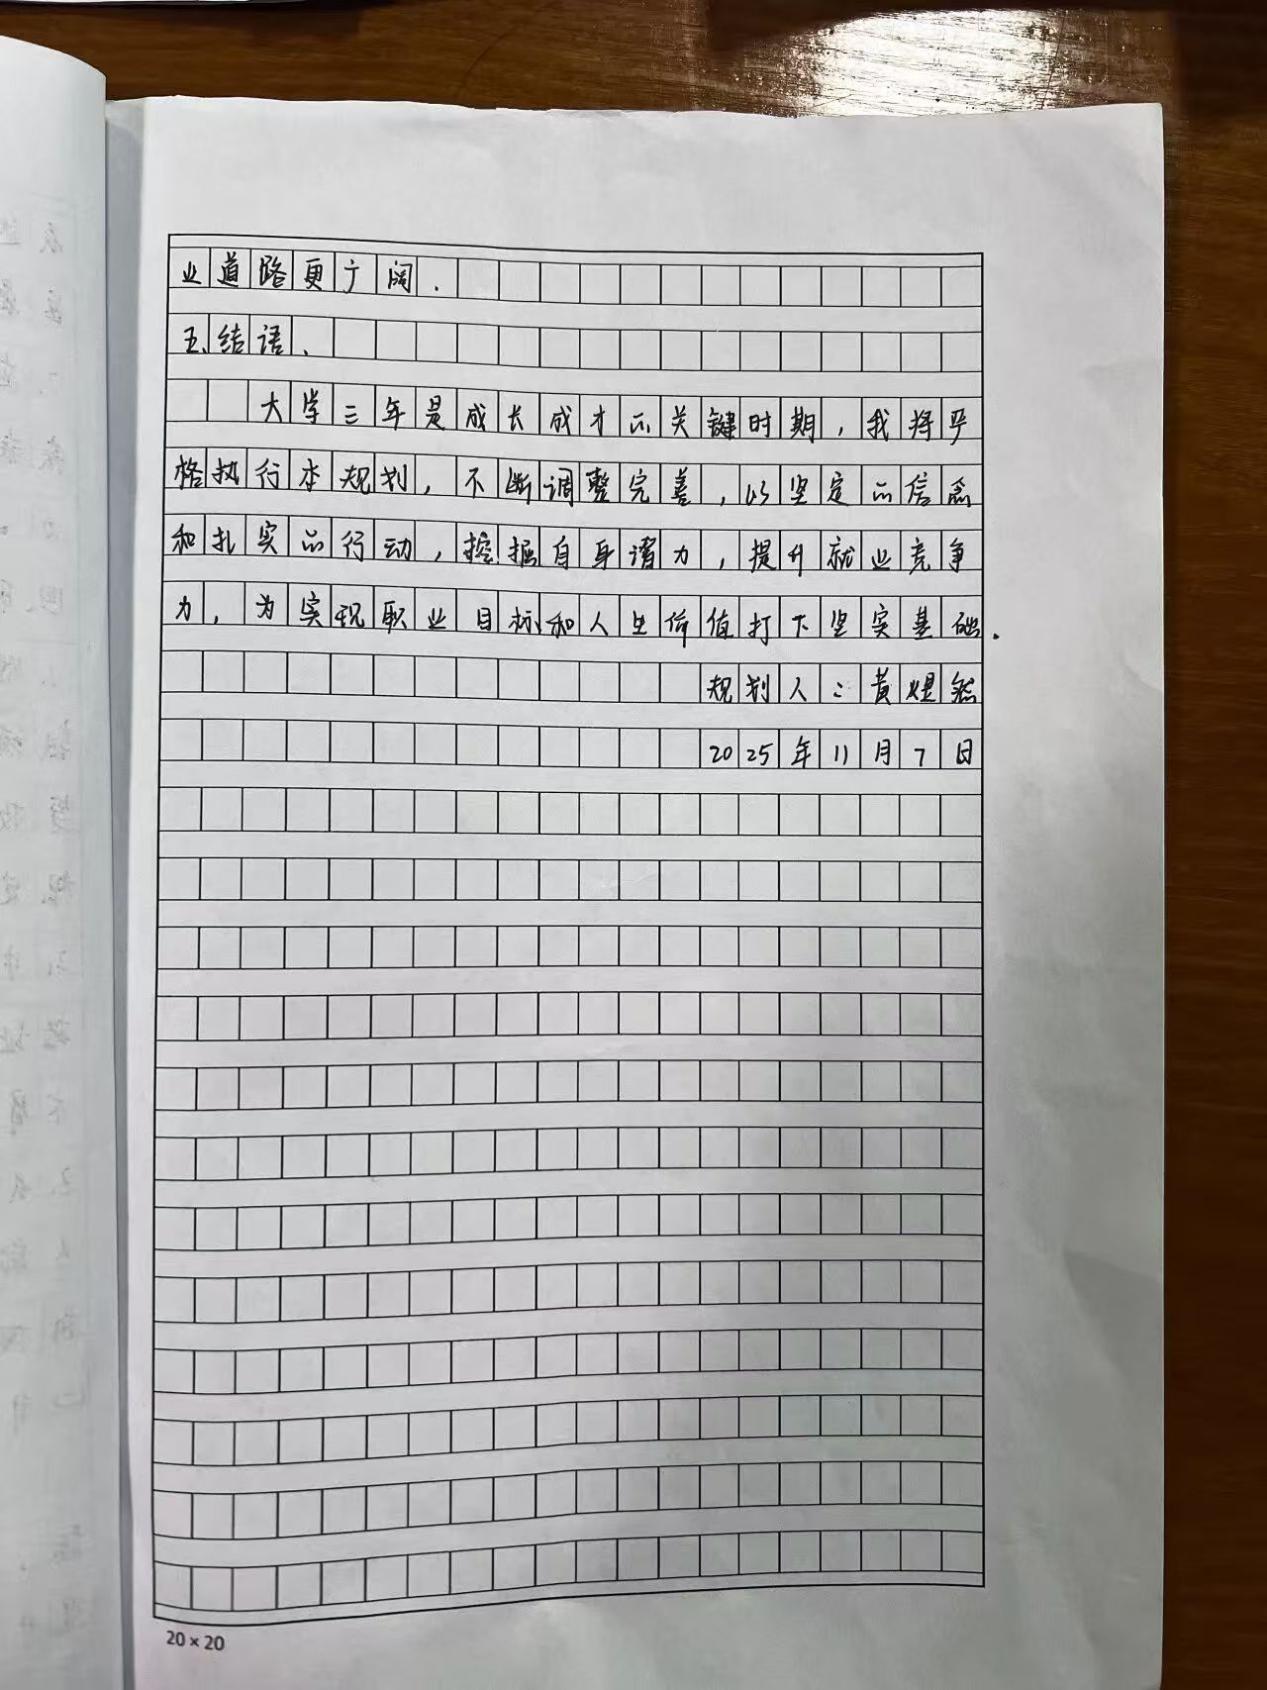 业道路更广阔.
五、结语、
大学三年是成长成才的关键时期,我将严
格执行本规划,不断调整完善,以坚定的信念
和扎实的行动,挖掘自身潜力,提升就业竞争
力,为实现职业目标和人生价值打下坚实基础.
规划人:黄煜然
2025年11月7日
20×20